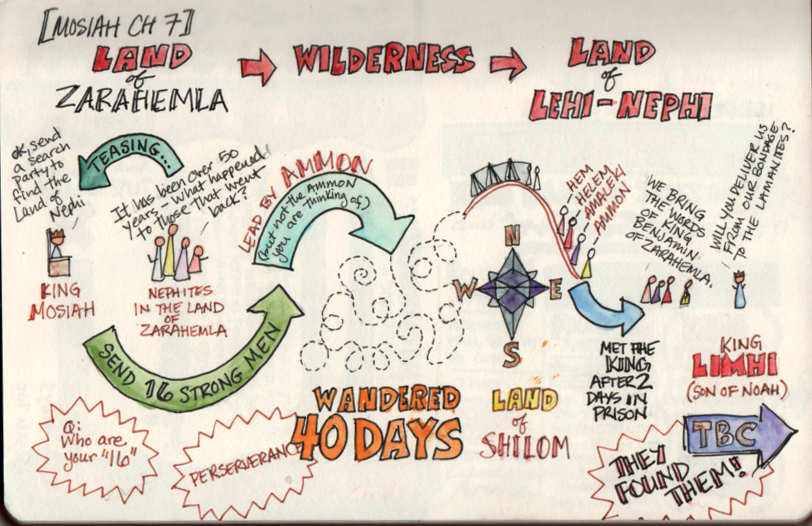 [MOSIAH CH 7]
LAND
of
ZARAHEMLA
WILDERNESS
LAND
of
LEHI-NEPHI
OK, send
a search
party to
find the
Land of
Nephi
TEASING...
It has been over 50
years - what happened
to those that went
back?
KING
MOSIAH
NEPHITES
IN THE LAND
OF
ZARAHEMLA
SEND 16 STRONG MEN
LEAD BY AMMON
(but not the AMMON
you are thinking of)
WANDERED
40 DAYS
N
W E
S
LAND
of
SHILOM
HEM
HELEM
AMALEKI
AMMON
WE BRING
THE WORDS
OF KING
BENJAMIN
OF ZARAHEMLA.
WILL YOU DELIVER US
FROM OUR BONDAGE
TO THE LAMANITES?
MET THE
KING
AFTER 2
DAYS IN
PRISON
KING
LIMHI
(SON OF NOAH)
Q:
Who are
your "16"
PERSERVERANCE
THEY
FOUND
THEM!!
TBC